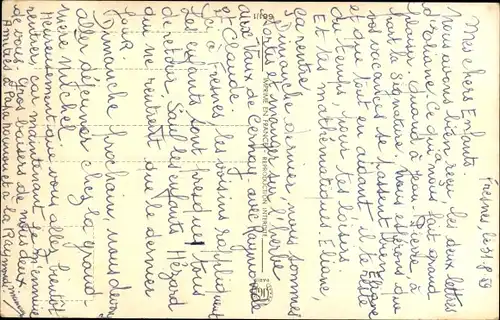 Fresnes, le 31.8.59
Mes chers Enfants.
Nous avons bien reçu les deux lettres
d'Eliane. Ce qui a nous fait grand
plaisir. Quand à Jean-Pierre, à
part la signature. Nous espérons que
vos vacances se passent bien
et que tout en aidant Eliane
du temps, pour tes loisirs
Et les mathématiques Eliane,
ça rentre.
Dimanche dernier, nous sommes
sortis et manger sur l'herbe
aux Vaux de Cernay, avec Raymonde
et Claude.
à Fresnes les voisins rappliquent
Les enfants sont presque tous
de retour. Sauf les enfants Hézard
qui ne rentrent que le dernier
jour.
Dimanche prochain, nous devons
aller déjeuner chez la grand-
mère Michel.
Heureusement que vous allez bientôt
rentrer, car maintenant je m'ennuie
de vous. Gros baisers de nous deux
Amitiés à Papa Nounou et à la
11/99
IMPRIMÉ EN FRANCE
REPRODUCTION INTERDITE